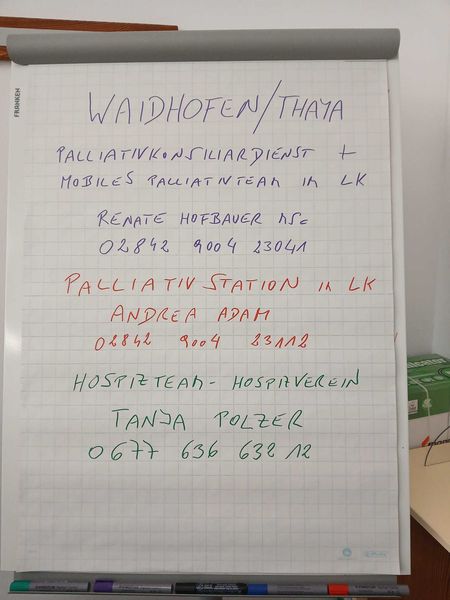 FRANKEN
WAIDHOFEN/THAYA
PALLIATIVKONSILIARDIENST +
MOBILES PALLIATIVTEAM im LK
RENATE HOFBAUER MSc
02842 9004 23041
PALLIATIV STATION im LK
ANDREA ADAM
02842 9004 23112
HOSPIZTEAM - HOSPIZVEREIN
TANJA POLZER
0677 636 632 12